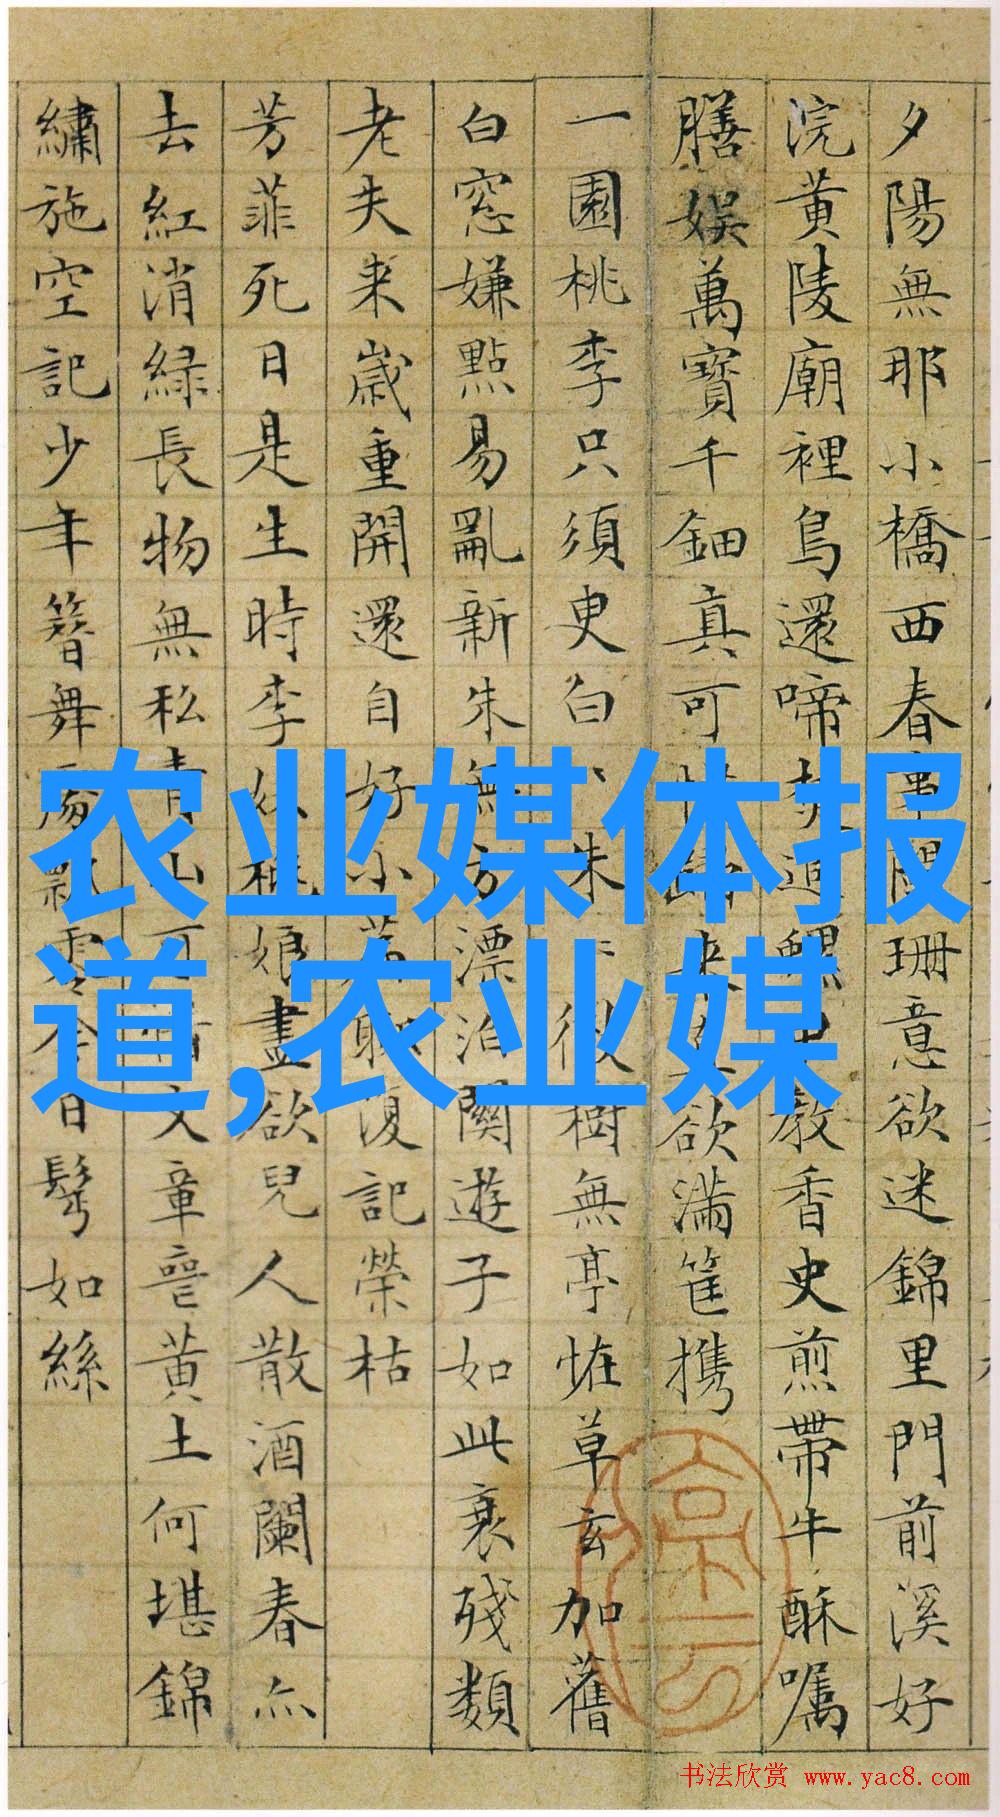 夕陽無那小橋西春事闌珊意欲迷錦里門前溪好
浣黃陵廟裡鳥還啼 教香史煎帶牛酥嘱
膳娛萬寶千鈿真可 欲滿筐携
一園桃李只須臾白 朱 樹無亭恠草玄加舊
白窓嫌點易亂新朱無方漂泊關遊子如此衰殘類
老失来歲重開還自好小 復記榮枯
芳菲死日是生時李 娘盡欲兒人散酒闌春亦
去紅消緑長物無私青山可惜文章喪黃土何堪錦
繡施空記少年簪舞處飄零今日鬂如絲
农业媒体报
道,农业媒
书法欣赏 www.yac8.com